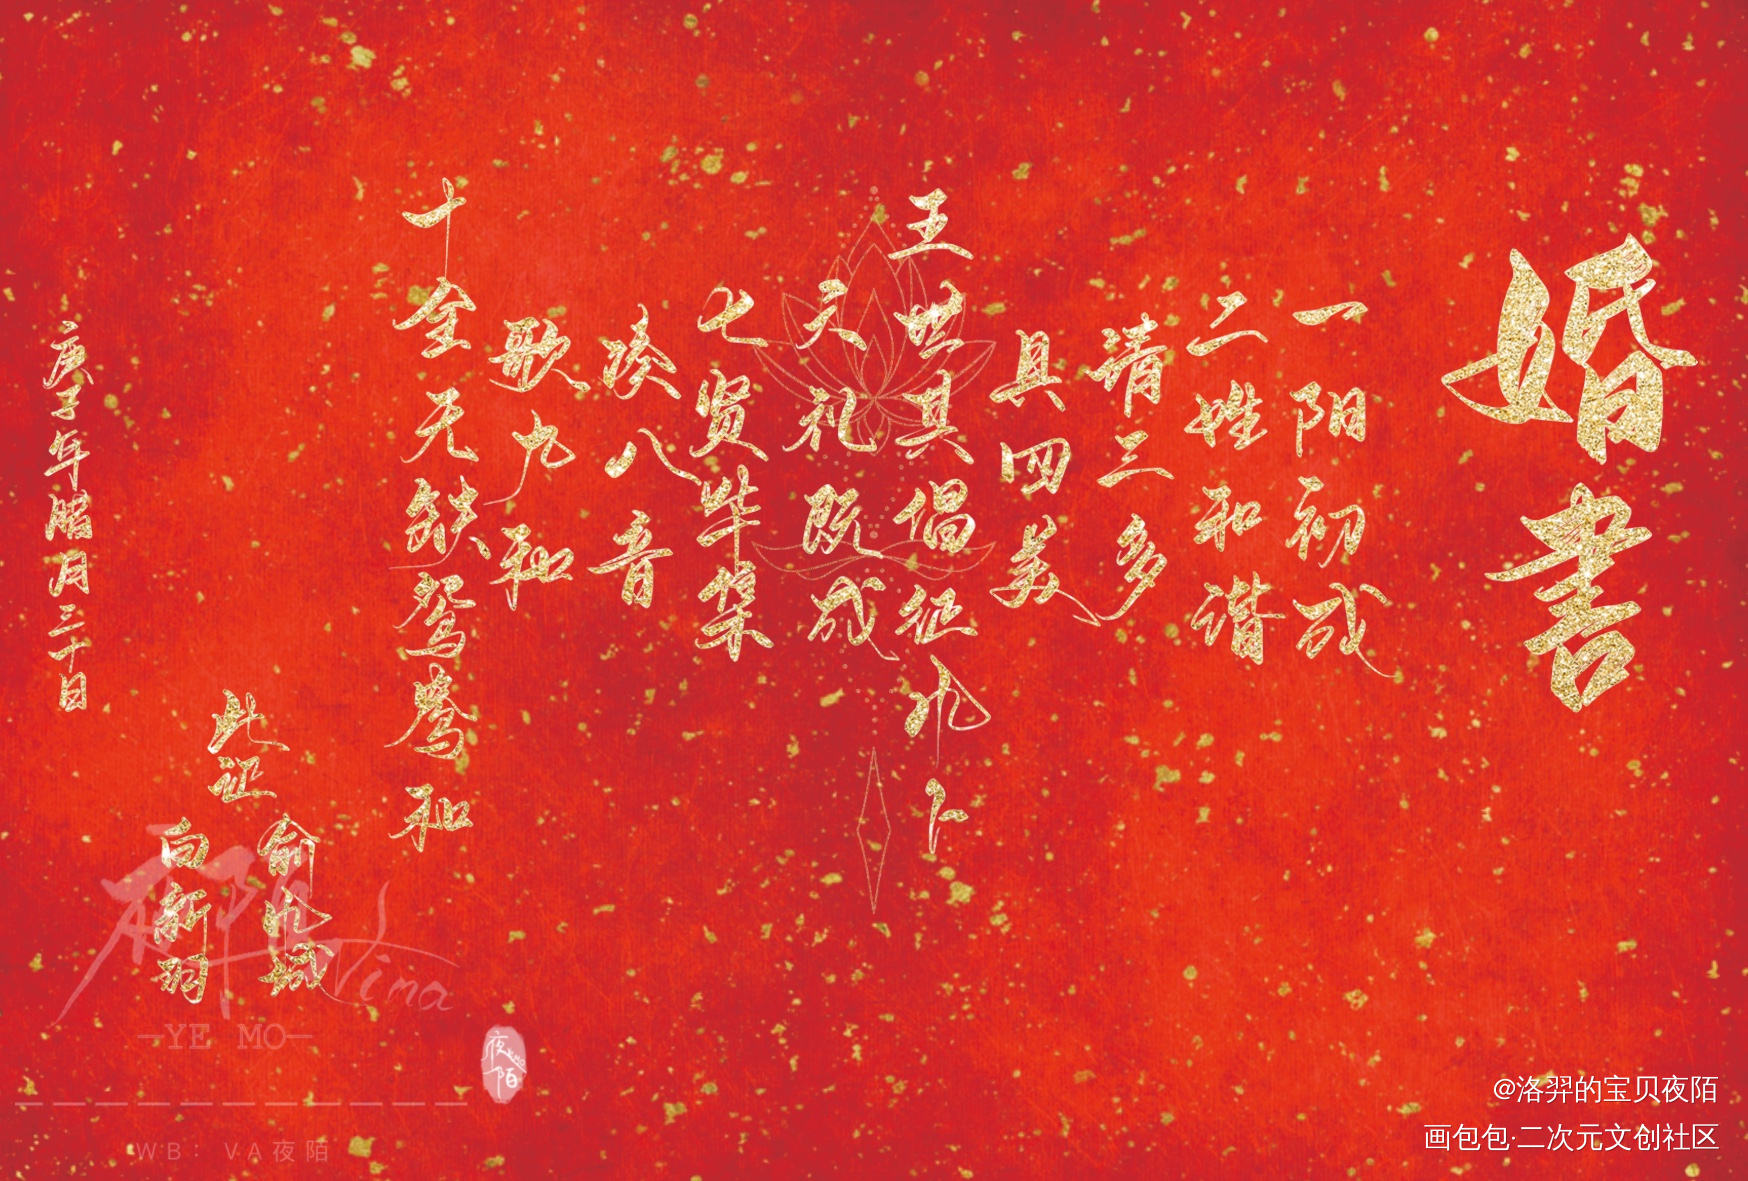 婚書
一阳初成
二姓和谐
请三多
具四美
王世其倡征凤卜
六礼既成
七贤毕集
凑八音
歌九和
十全无缺鸳鸯和
此证
白新羽
庚子年腊月三十日
夜陌
Vina
—YE MO—
夜陌
WB：VA夜陌
@洛羿的宝贝夜陌
画包包·二次元文创社区